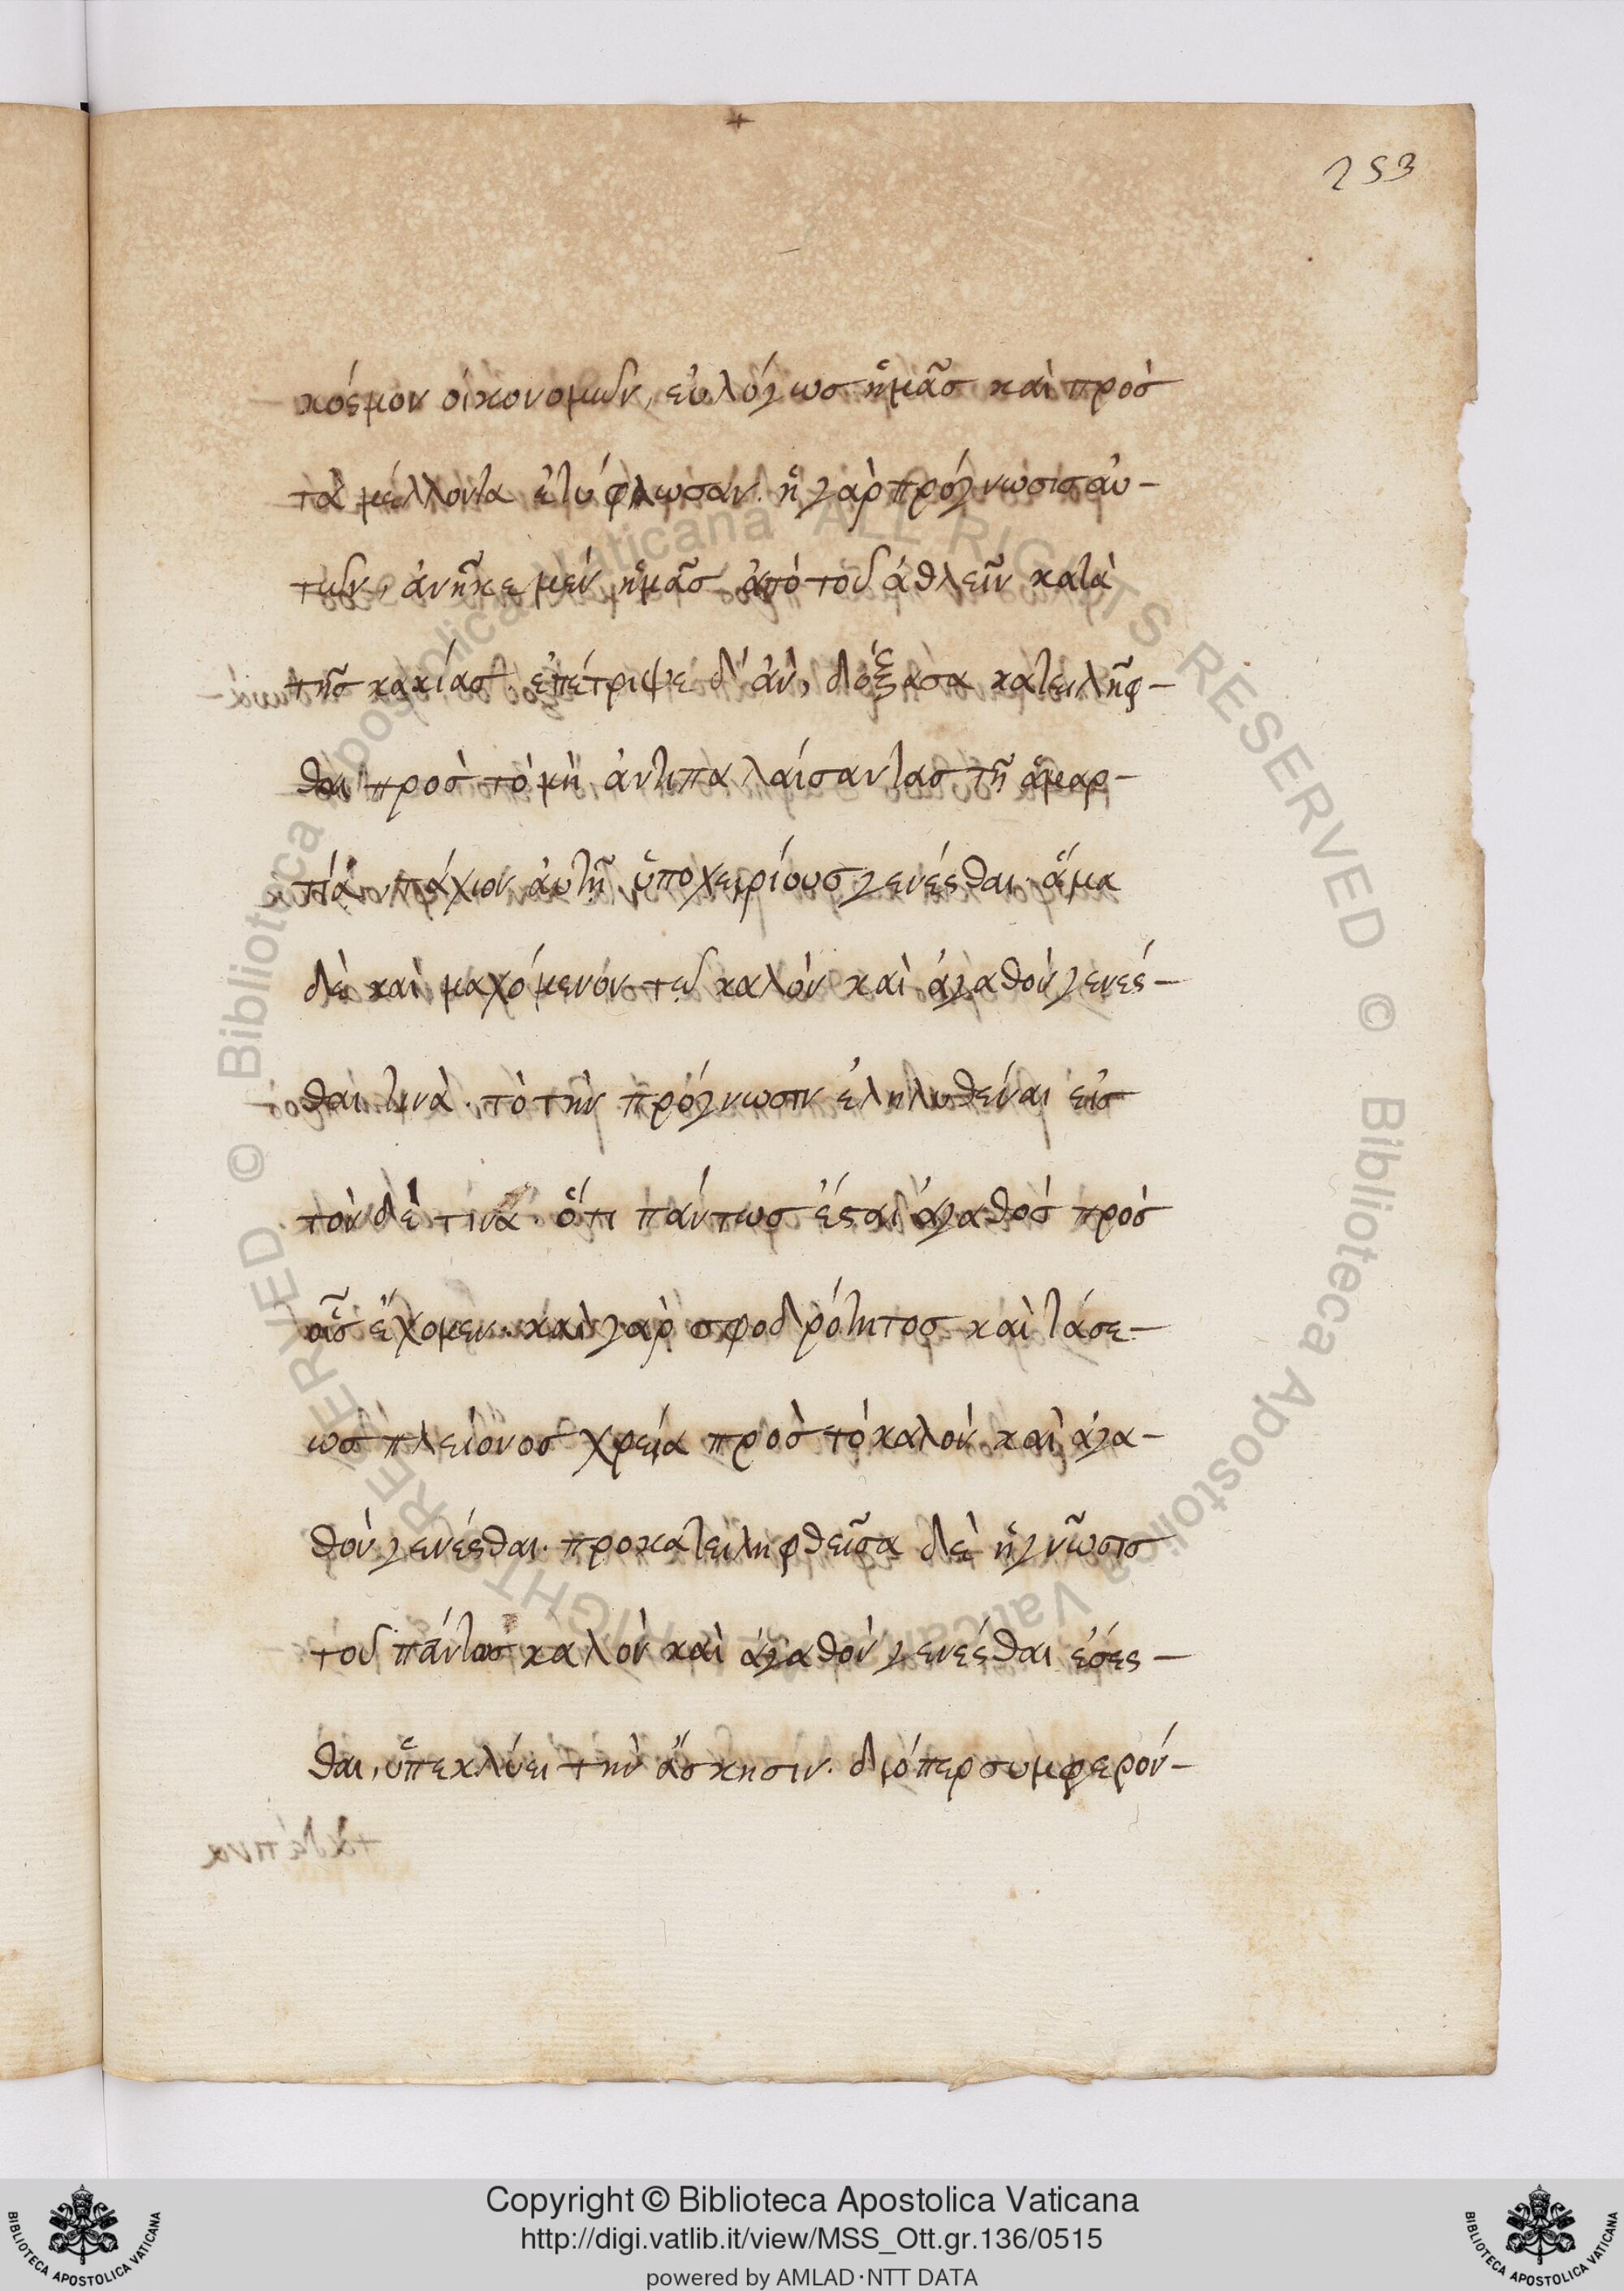 253
κόσμον οἰκονομῶν, εὐλόγως ἡμᾶς καὶ πρὸς
τὰ μέλλοντα ἐτύφλωσαν. ἡ γὰρ πρόγνωσις αὐ-
τῶν, ἀνῆκε μὲν ἡμᾶς ἀπὸ τοῦ ἀθλεῖν κατὰ
τῆς κακίας, ἐπέτριψε δ' ἂν, δόξασα κατειλῆφ-
θαι πρὸς τὸ μὴ ἀντιπαλαίσαντας τῇ ἁμαρ-
τίᾳ τάχιον αὐτῇ ὑποχειρίους γενέσθαι. ἅμα
δὲ καὶ μαχόμενον τῷ καλὸν καὶ ἀγαθὸν γενέσ-
θαι τινὰ. τὸ τὴν πρόγνωσιν ἐληλυθέναι εἰς
τὸν δέ τινα. ὅτι πάντως ἔσται ἀγαθὸς πρὸς
οἷς ἔχομεν. καὶ γὰρ σφοδρότητος καὶ τάσε-
ως πλείονος χρεία πρὸς τὸ καλὸν καὶ ἀγα-
θὸν γενέσθαι. προκατειληφθεῖσα δὲ ἡ γνῶσις
τοῦ πάντως καλὸν καὶ ἀγαθὸν γενέσθαι ἔσεσ-
θαι, ὑπεκλύει τὴν ἄσκησιν. διόπερ συμφερόν-
Copyright © Biblioteca Apostolica Vaticana
http://digi.vatlib.it/view/MSS_Ott.gr.136/0515
powered by AMLAD·NTT DATA
BIBLIOTECA APOSTOLICA VATICANA
BIBLIOTECA APOSTOLICA VATICANA
© Biblioteca Apostolica Vaticana ALL RIGHTS RESERVED © Biblioteca Apostolica Vaticana ALL RIGHTS RESERVED